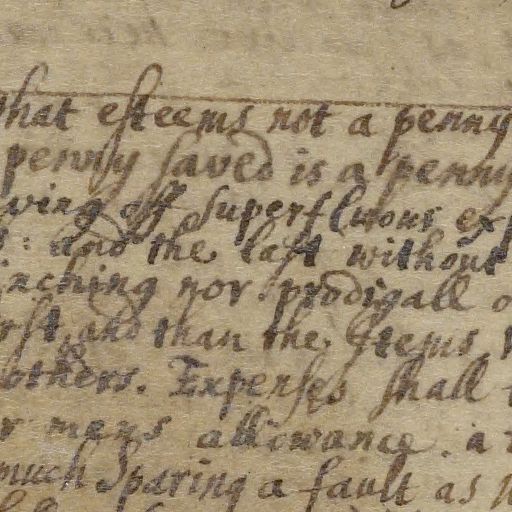 that esteems not a penny
penny saved is a penny
wing off superfluous exp
: and the last without
inching nor prodigall
rst, and than the Items
others. Expenses shall
r mens allowance. a
much Sparing a fault as